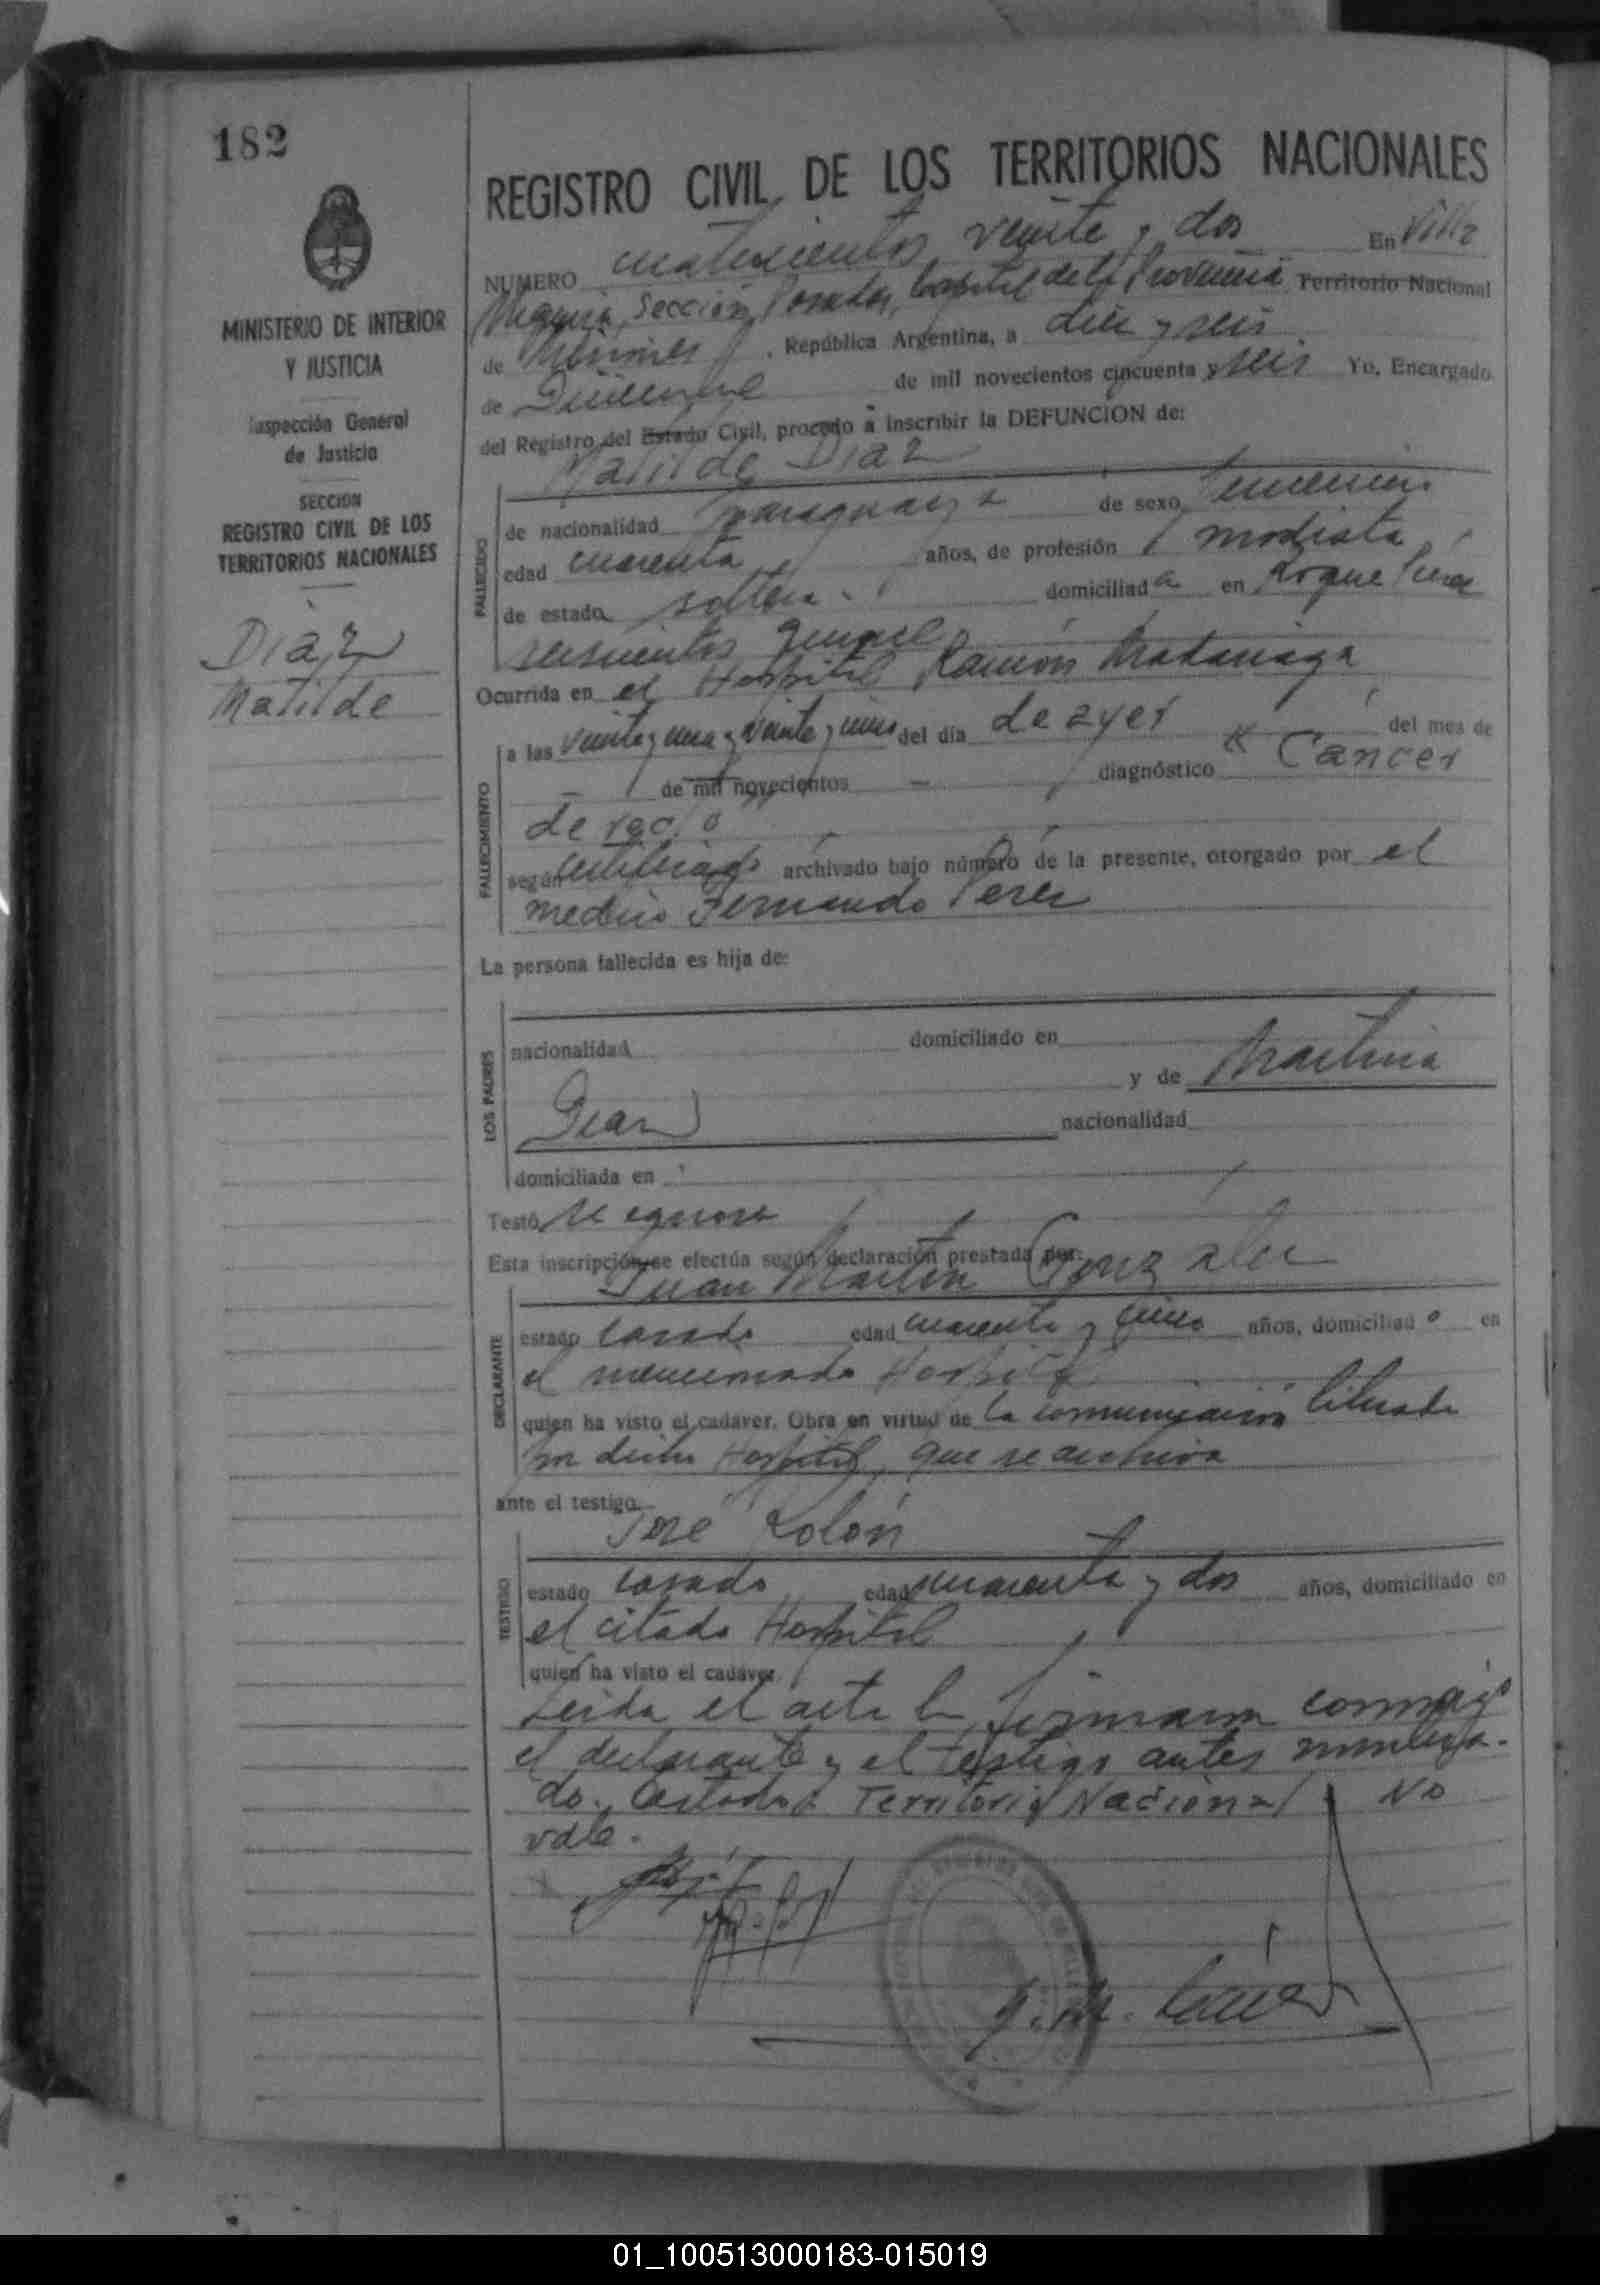 182
REGISTRO CIVIL DE LOS TERRITORIOS NACIONALES
MINISTERIO DE INTERIOR
Y JUSTICIA
Inspección General
de Justicia
SECCION
REGISTRO CIVIL DE LOS
TERRITORIOS NACIONALES
Díaz
Matilde
NUMERO cuatrocientos veinte y dos En Villa
Sección Posadas, Capital de la Provincia Territorio Nacional
de Misiones, República Argentina, a diez y seis
de Diciembre de mil novecientos cincuenta y seis Yo, Encargado
del Registro del Estado Civil, procedo a inscribir la DEFUNCION de:
Matilde Díaz
FALLECIDO
de nacionalidad paraguaya de sexo femenino
edad cuarenta años, de profesión modista
de estado soltera domiciliada en Roque Perez
seiscientos
Ocurrida en el Hospital General Ramón Madariaga
FALLECIMIENTO
a las veinte y una y veinte y cinco del día de ayer del mes de
— de mil novecientos — diagnóstico Cancer
de recto
según certificado archivado bajo número de la presente, otorgado por el
medico Fernando Perez
La persona fallecida es hija de:
LOS PADRES
nacionalidad domiciliado en
y de Martina
Diaz nacionalidad
domiciliada en
Testó se ignora
Esta inscripción se efectúa según declaración prestada por:
Juan Martin Gonzalez
DECLARANTE
estado casado edad cuarenta y cinco años, domiciliado en
el mencionado Hospital
quien ha visto el cadáver. Obra en virtud de la comunicación librada
por dicho Hospital, que se archiva
ante el testigo
José Rolón
TESTIGO
estado casado edad cuarenta y dos años, domiciliado en
el citado Hospital
quien ha visto el cadáver.
Leida el acta la firmaron conmigo
el declarante y el testigo antes nombra-
do. Testado: Territorio Nacional No
vale.
01_100513000183-015019